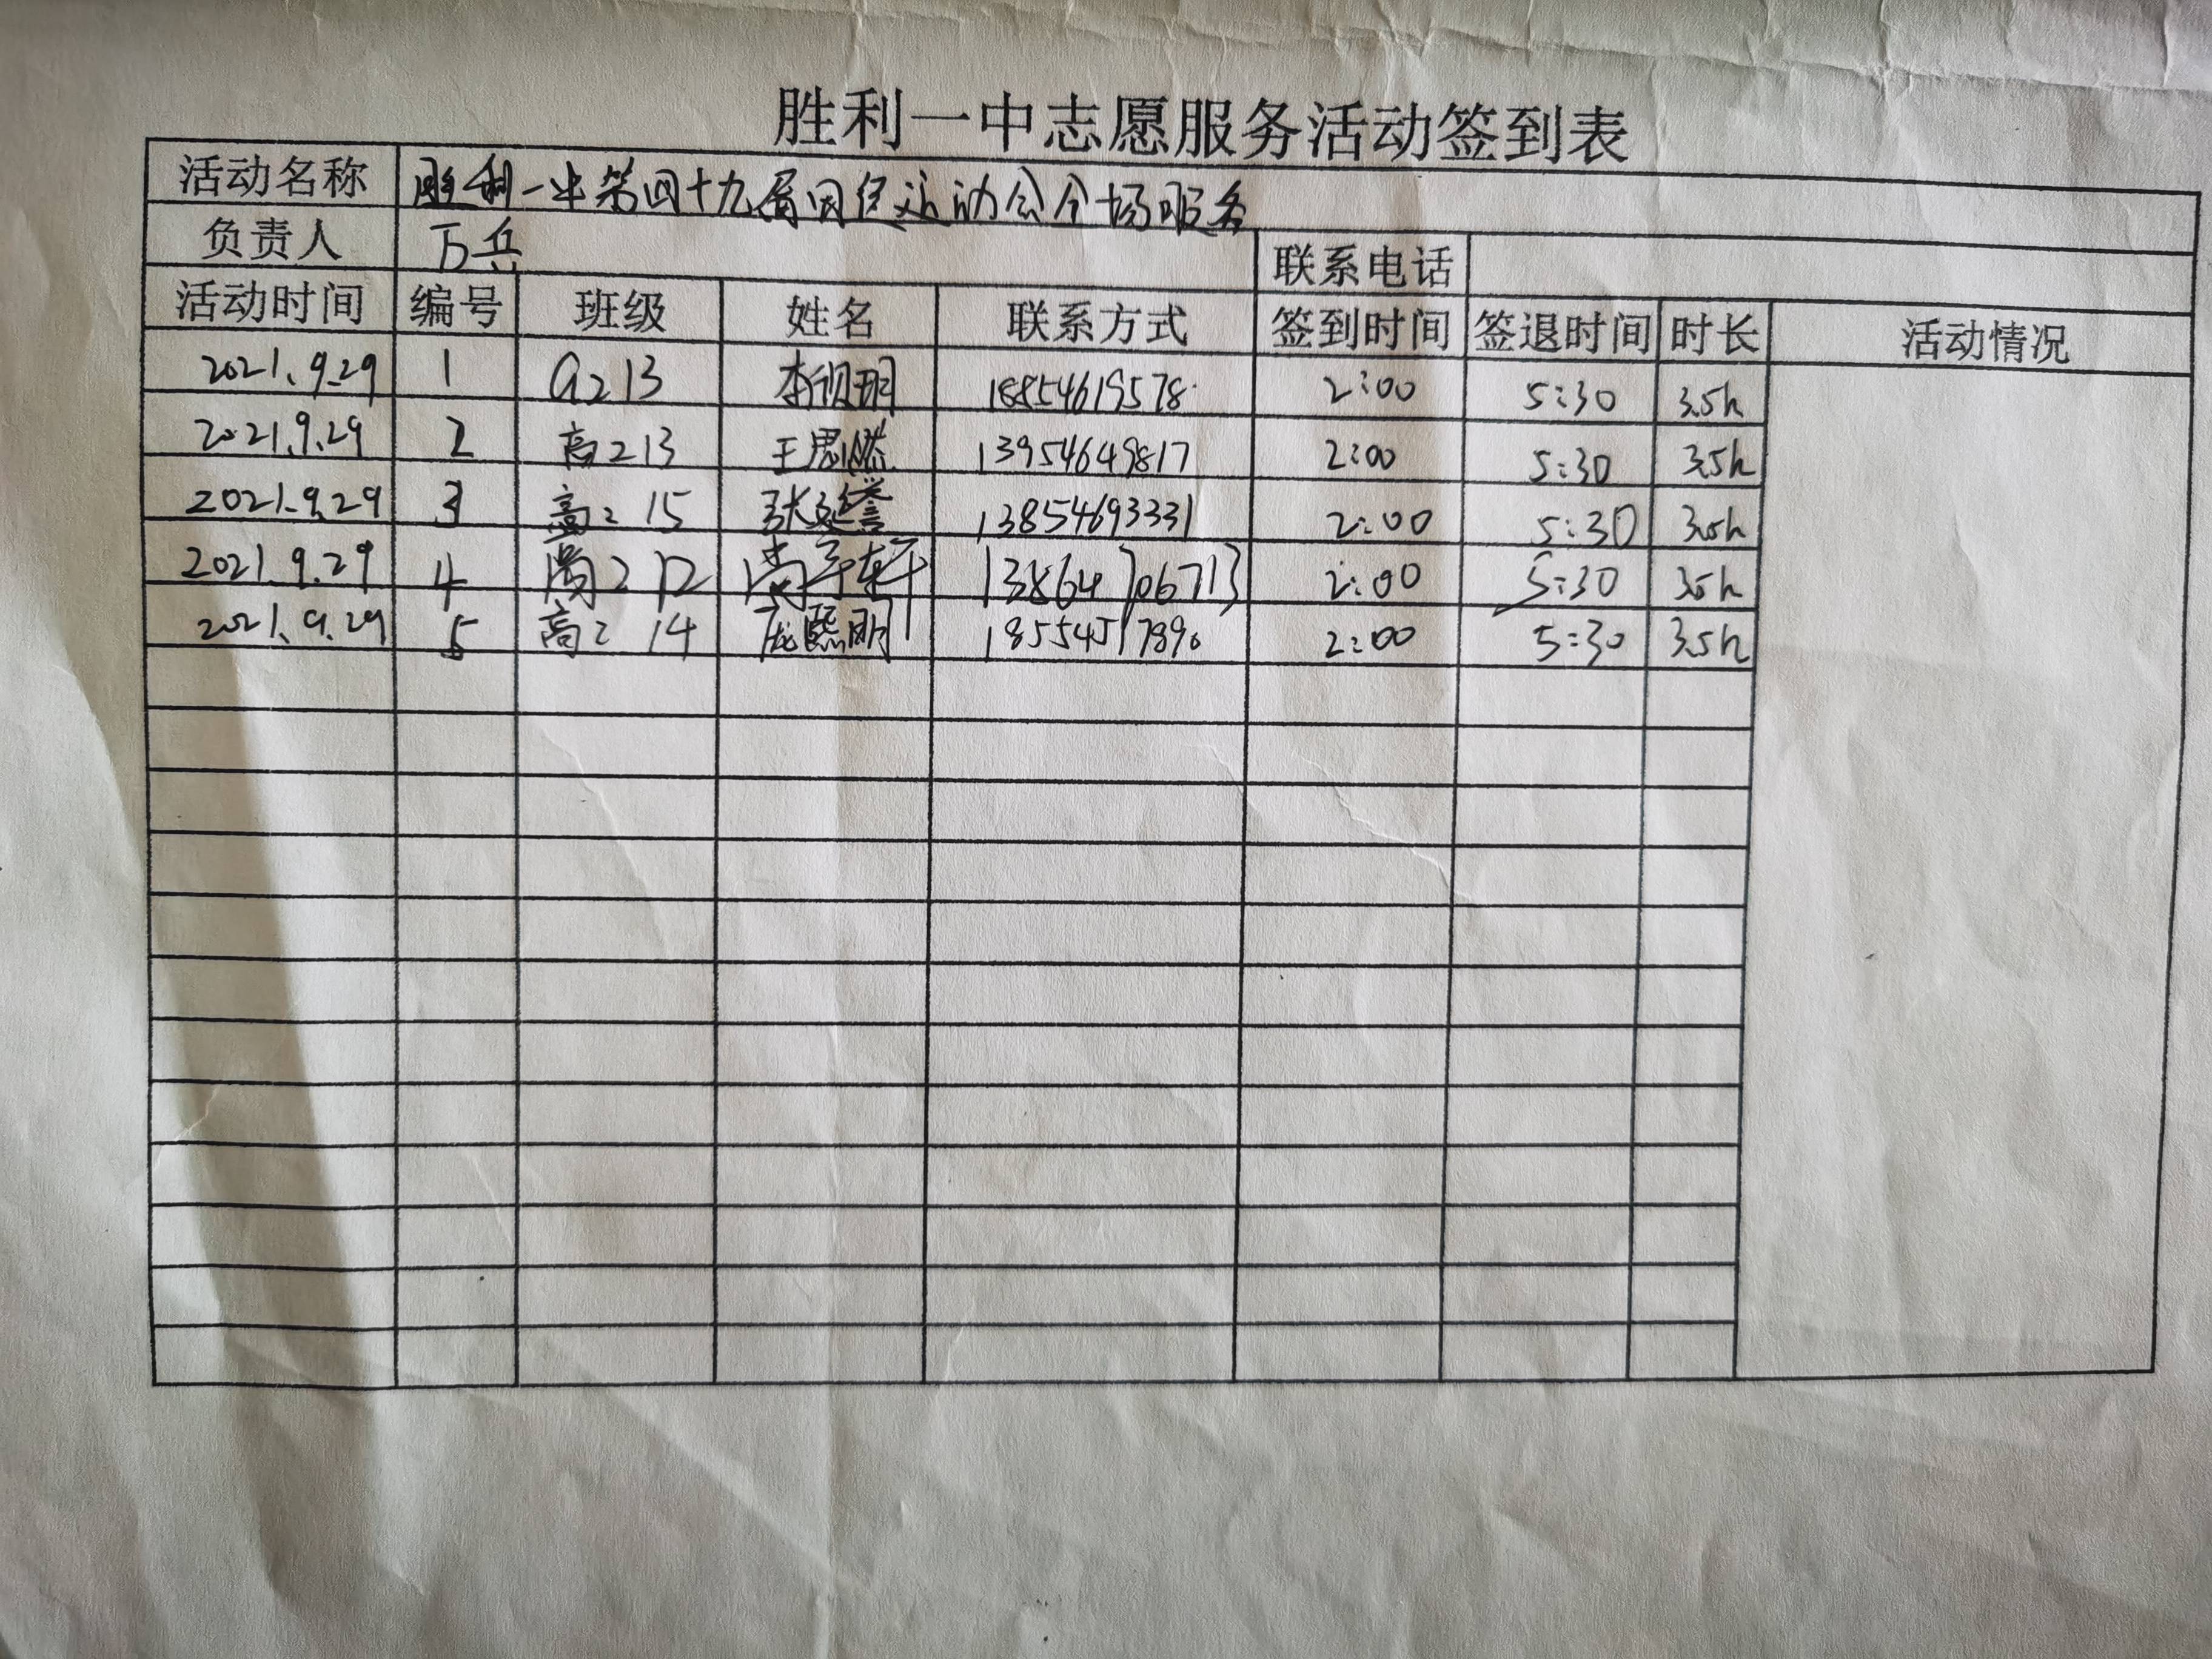 胜利一中志愿服务活动签到表
活动名称 胜利一中第四十九届田径运动会会场服务
负责人 万兵 联系电话
活动时间 编号 班级 姓名 联系方式 签到时间 签退时间 时长 活动情况
2021.9.29 1 G213 18854619578 2:00 5:30 3.5h
2021.9.29 2 高213 王思 13954649817 2:00 5:30 3.5h
2021.9.29 3 高二 15 张延誉 13854693331 2:00 5:30 3.5h
2021.9.29 4 高2 12 尚子轩 13864706713 2:00 5:30 3.5h
2021.9.29 5 高二 14 庞熙明 18554517890 2:00 5:30 3.5h